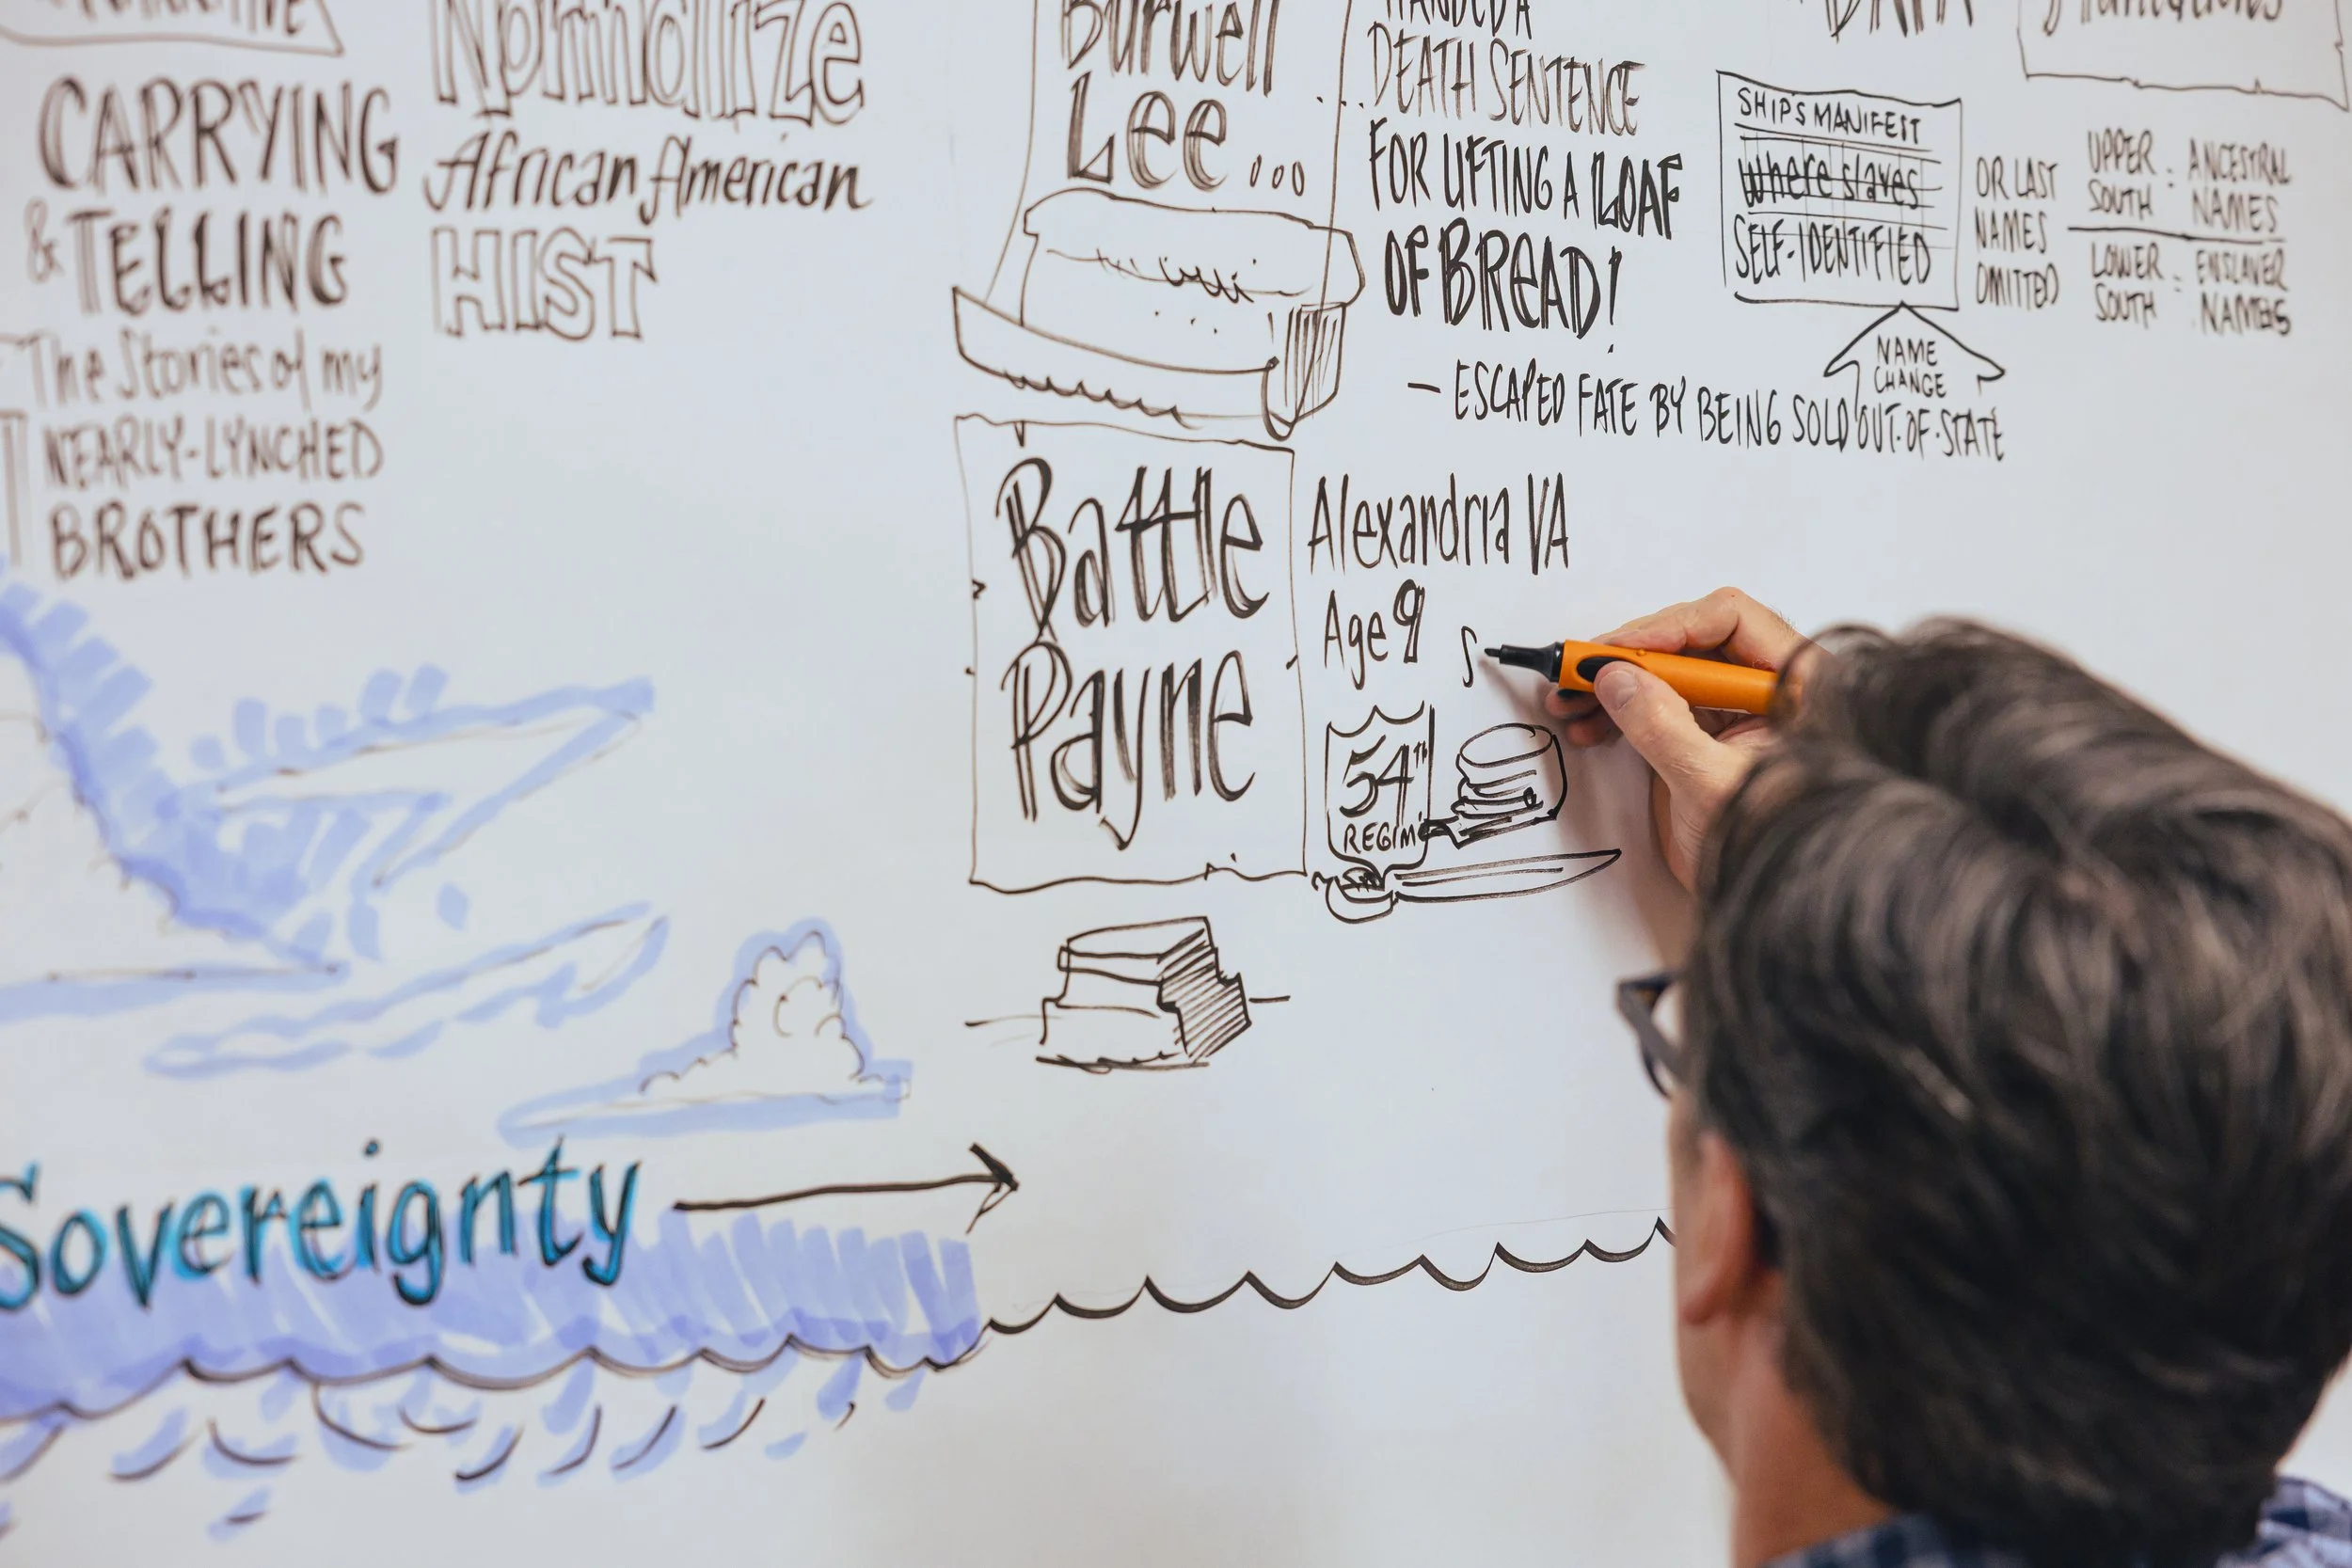 CARRYING
& TELLING
The Stories of my
NEARLY-LYNCHED
BROTHERS
Normalize
African American
HIST
Burwell
Lee...
HANDED A
DEATH SENTENCE
FOR LIFTING A LOAF
OF BREAD!
— ESCAPED FATE BY BEING SOLD OUT-OF-STATE
SHIP'S MANIFEST
where slaves
SELF-IDENTIFIED
NAME
CHANGE
OR LAST
NAMES
OMITTED
UPPER SOUTH : ANCESTRAL NAMES
LOWER SOUTH = ENSLAVER NAMES
Battle
Payne
Alexandria VA
Age 9
S
54TH
REGIM
Sovereignty